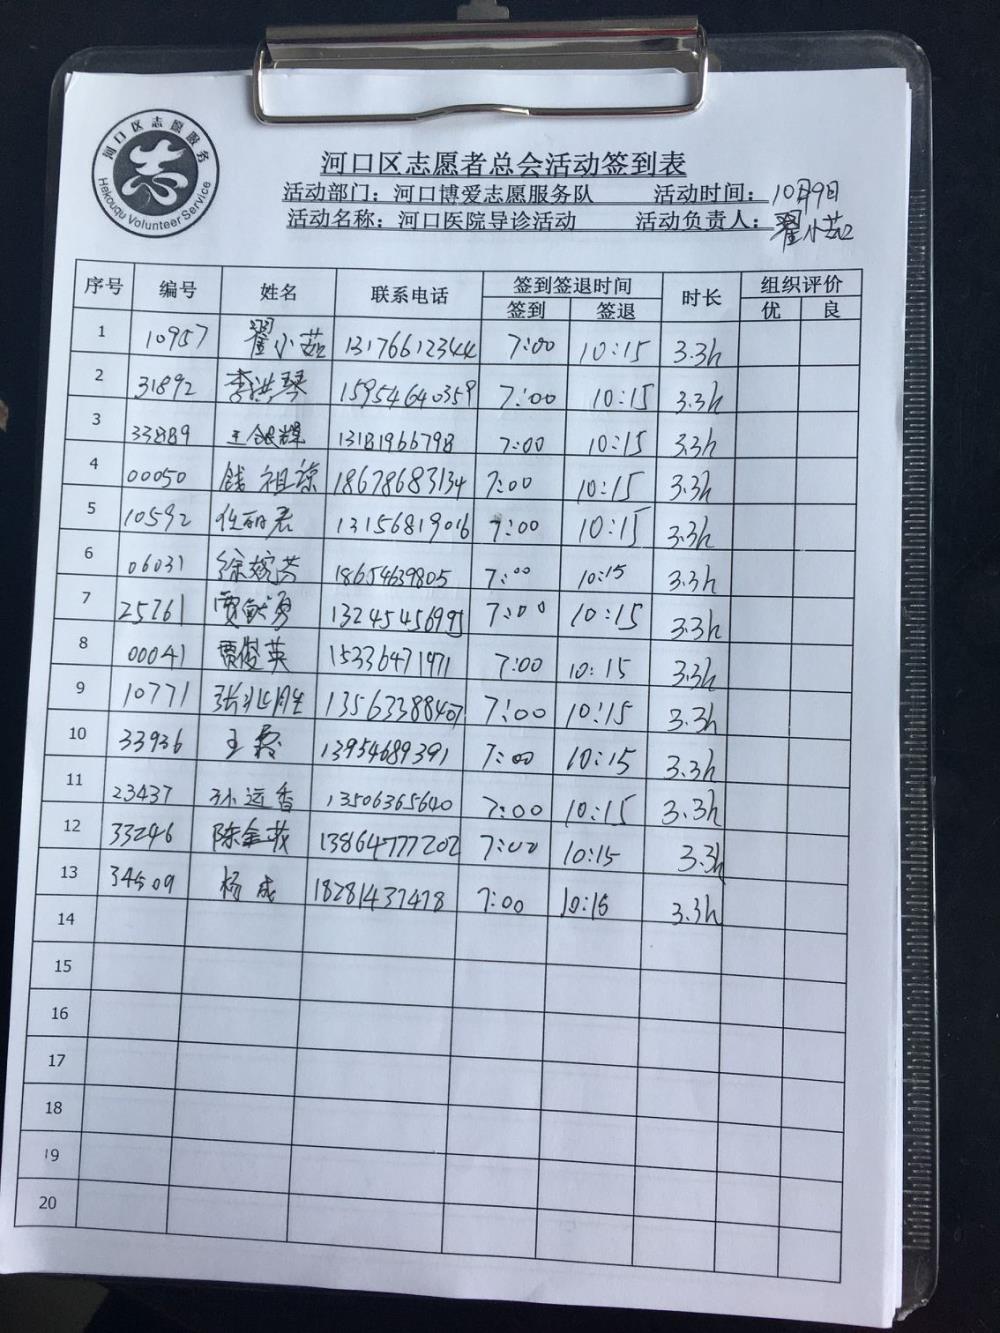 河口区志愿服务
志
Hekouqu Volunteer Service
河口区志愿者总会活动签到表
活动部门：河口博爱志愿服务队 活动时间：10月9日
活动名称：河口医院导诊活动 活动负责人：翟小茹
序号 编号 姓名 联系电话 签到签退时间 时长 组织评价
签到 签退 优 良
1 10957 翟小茹 13176612344 7:00 10:15 3.3h
2 31892 李洪琴 15954640359 7:00 10:15 3.3h
3 33889 王 辉 13181966798 7:00 10:15 3.3h
4 00050 钱祖 18678683134 7:00 10:15 3.3h
5 10592 任丽君 13156819016 7:00 10:15 3.3h
6 06031 徐嫁芸 18654639805 7:00 10:15 3.3h
7 25761 贾献勇 13245456995 7:00 10:15 3.3h
8 00041 贾俊英 15336471971 7:00 10:15 3.3h
9 10771 张兆胜 13563388407 7:00 10:15 3.3h
10 33936 王 13954689391 7:00 10:15 3.3h
11 23437 孙远香 13506365640 7:00 10:15 3.3h
12 33246 陈金 13864777202 7:00 10:15 3.3h
13 34509 杨成 18281437478 7:00 10:15 3.3h
14
15
16
17
18
19
20